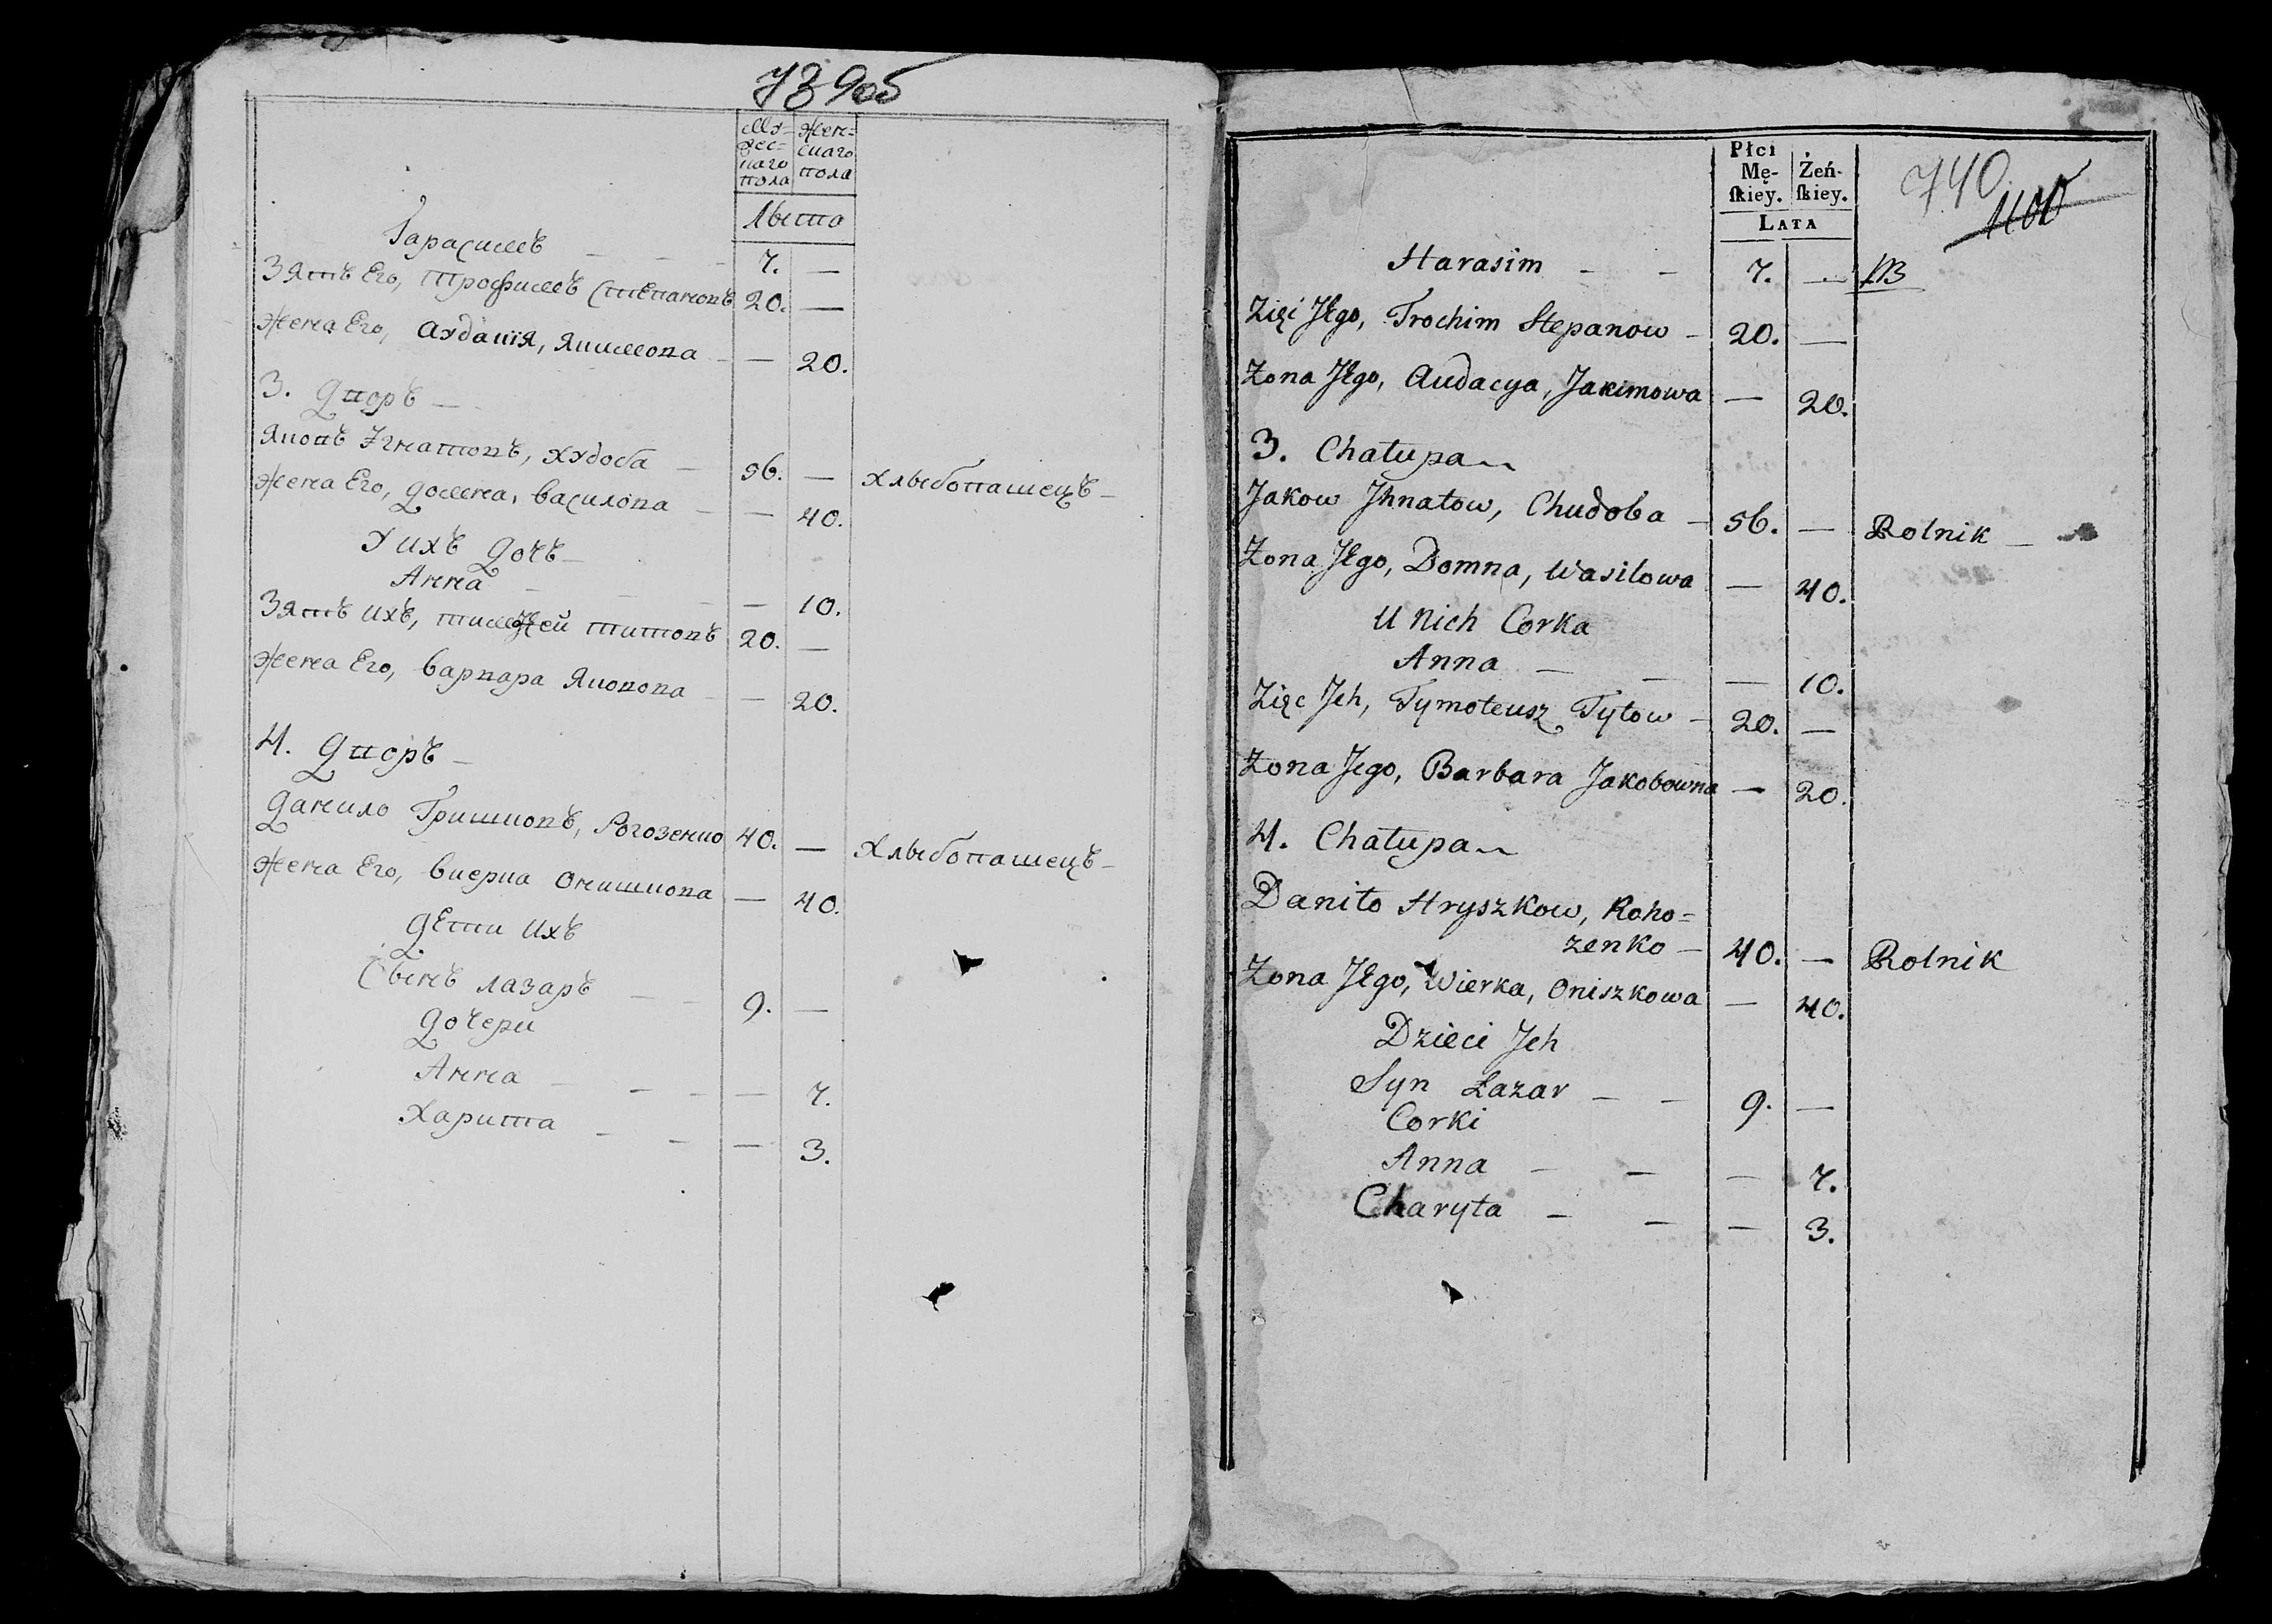 739об
Му-
жес-
каго
пола
Жен=
скаго
пола
Лѣта
Гарасимъ — — — 7. —
Зять Его, Трофимъ Степановъ 20. —
Жена Его, Аудакія, Якимова — — 20.
3. Дворъ —
Яковъ Игнатовъ, Худоба — 56. — Хлѣбопашецъ —
Жена Его, Домна, Василова — — 40.
У ихъ Дочъ —
Анна — — — — 10.
Зять Ихъ, Тимофей Титовъ 20. —
Жена Его, Варвара Яковова — — 20.
4. Дворъ —
Данило Гришковъ, Рогозенко 40. — Хлѣбопашецъ —
Жена Его, Вперка Онишкова — 40.
Дети Ихъ
Сынъ Лазаръ — — 9. —
Дочери
Анна — — — — 7.
Харита — — — 3.
Płci
Mę-
ſkiey.
Żeń-
ſkiey.
LATA
740
1100
Harasim — — 7. — 113
Zięć Jego, Trochim Stepanow — 20. —
Żona Jego, Audacya, Jakimowa — 20.
3. Chałupa
Jakow Jhnatow, Chudoba — 56. — Rolnik —
Żona Jego, Domna, Wasilowa — 40.
U Nich Corka
Anna — — — 10.
Zięc Jch, Tymoteusz Tytow — 20. —
Żona Jego, Barbara Jakobowna — 20.
4. Chałupa
Daniło Hryszkow, Roho=
zenko — 40. — Rolnik
Żona Jego, Wierka, Oniszkowa — 40.
Dzieci Jch
Syn Łazar — — 9. —
Corki
Anna — — — 7.
Charyta — — — 3.